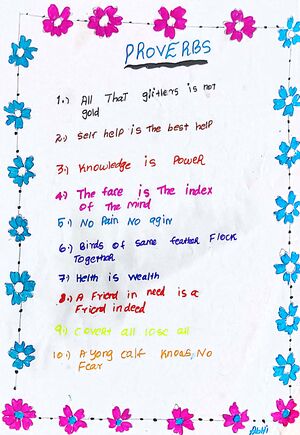 PROVERBS
1.) All That glitters is not
gold
2.) Self help is the best help
3.) Knowledge is Power
4.) The fare is The index
of The mind
5.) No Pain No agin
6.) Birds of same feather Flock
Together
7.) Helth is wealth
8.) A Friend in need is a
Friend indeed
9.) Covert all lose all
10.) A yong calf knows No
Fear
Abhi